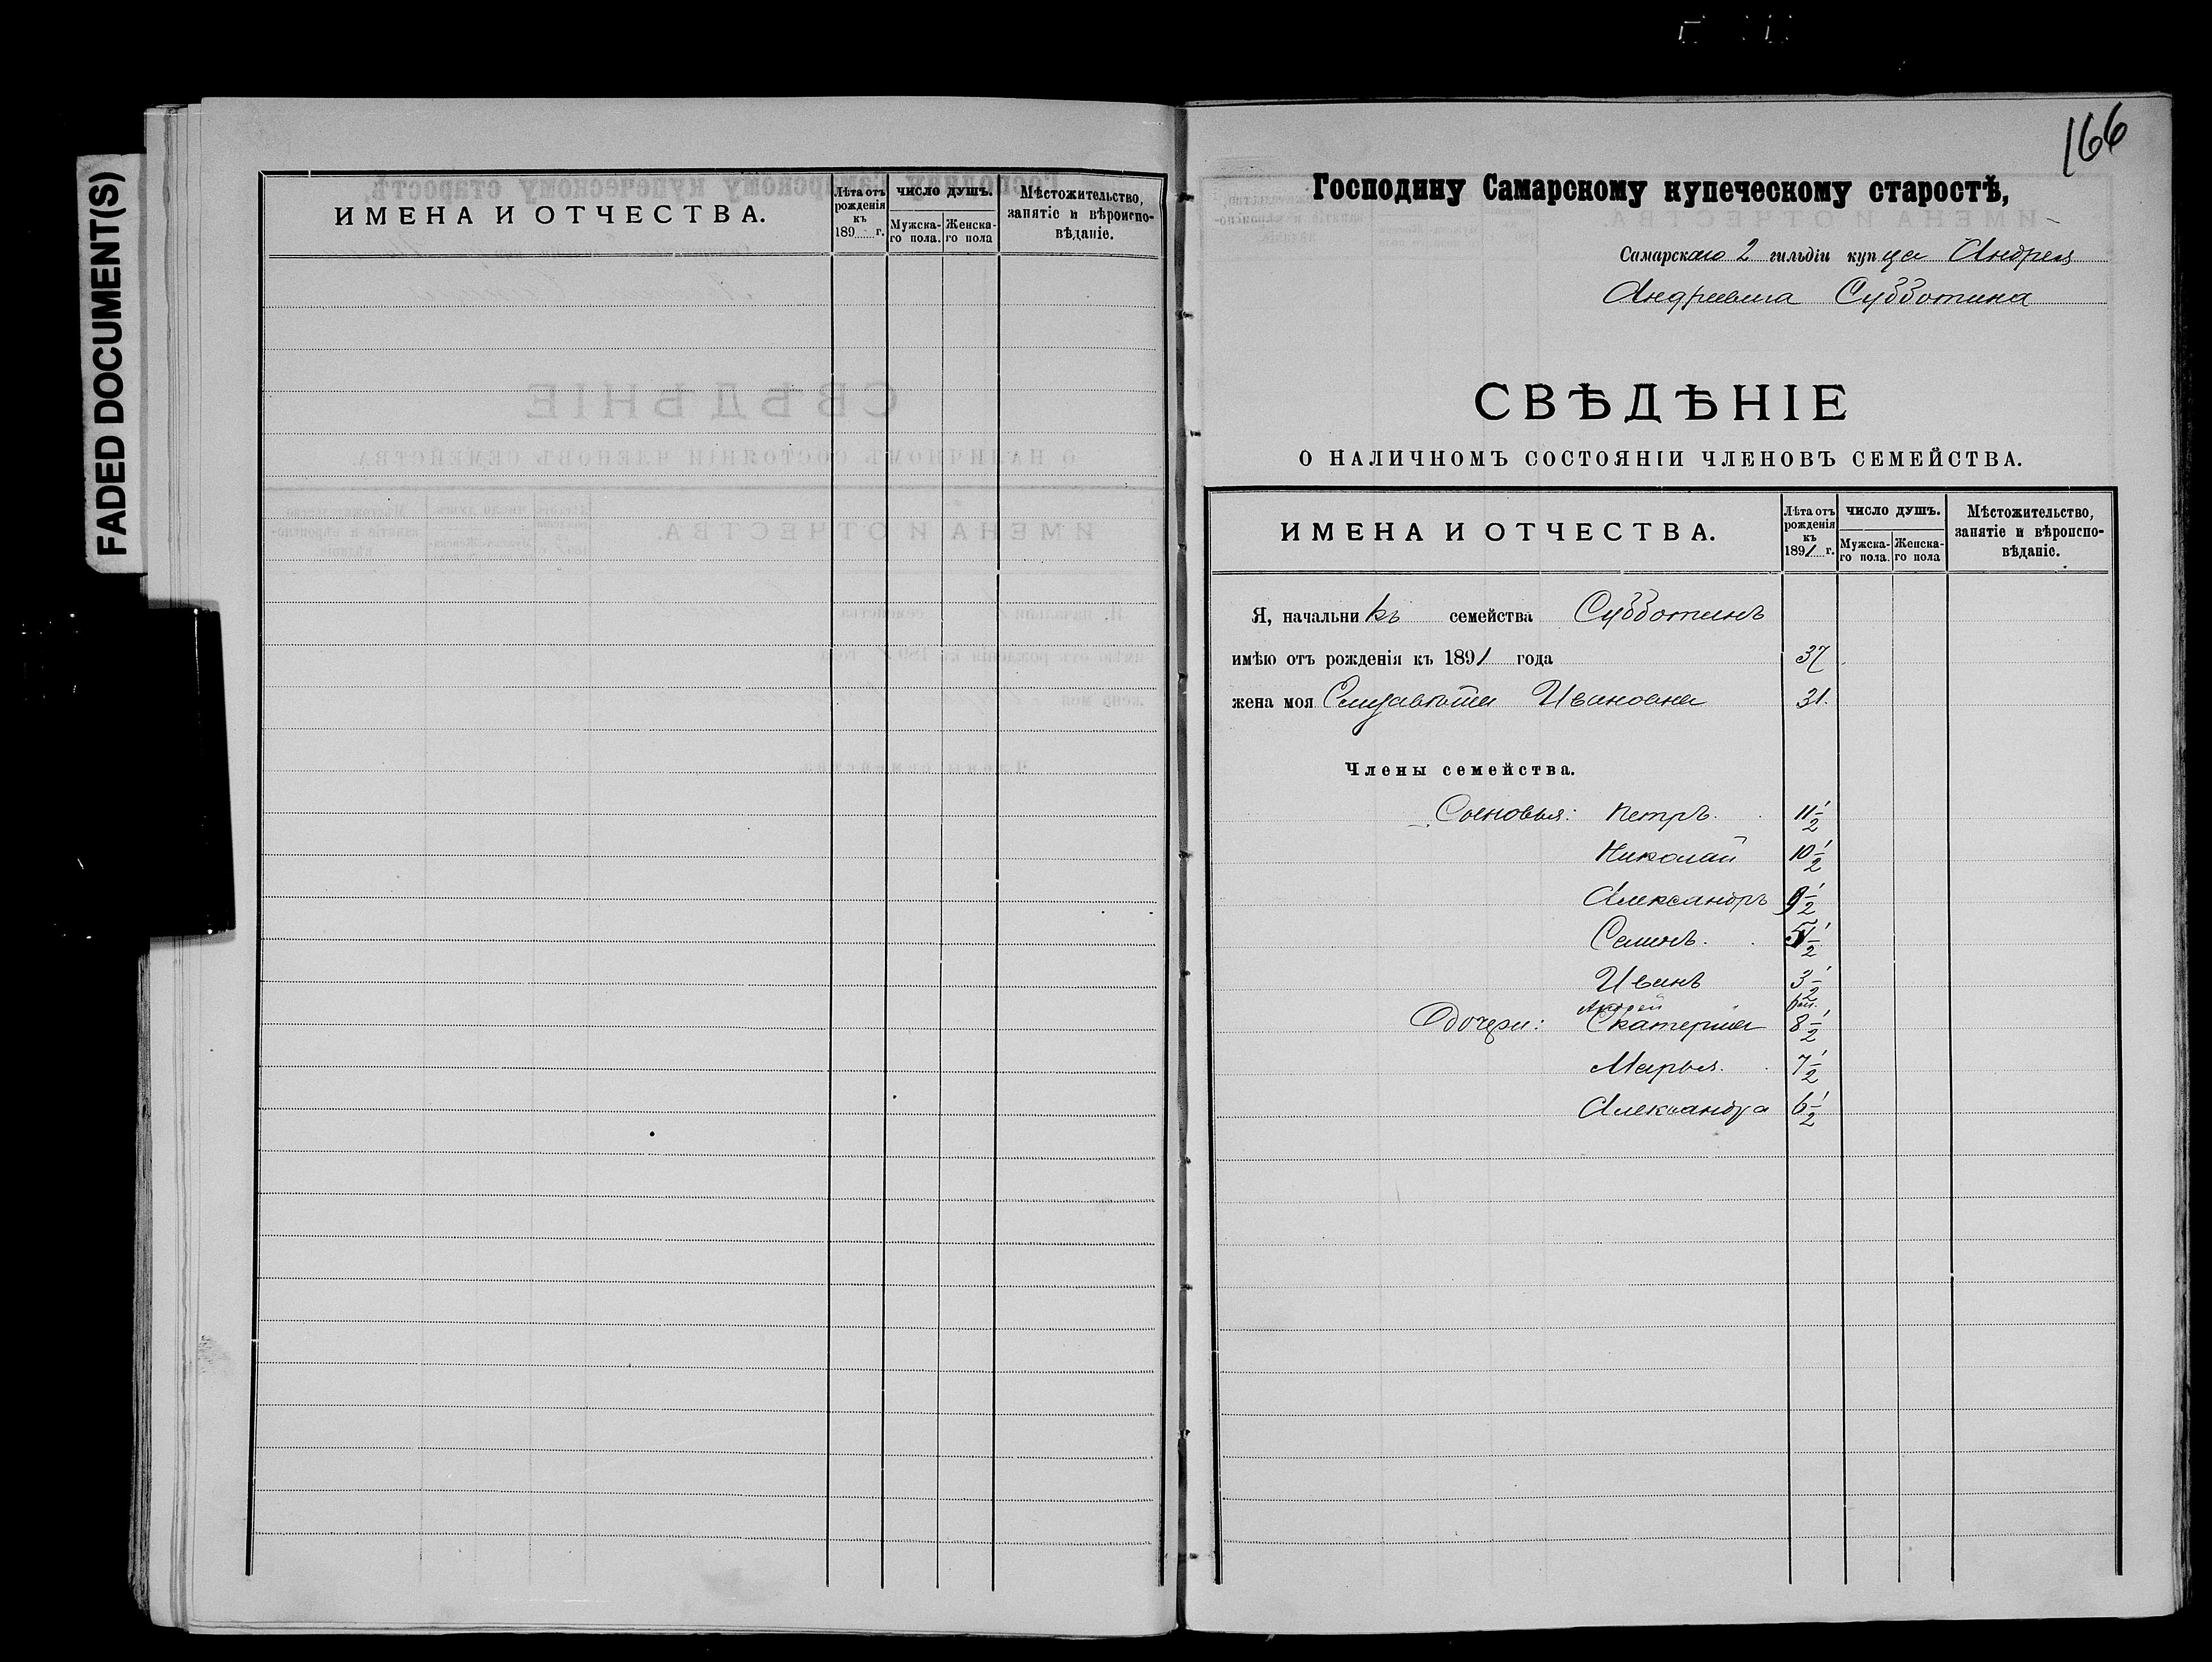 FADED DOCUMENT(S)
ИМЕНА И ОТЧЕСТВА.
Лѣта отъ рожденія къ 189 г.
ЧИСЛО ДУШЪ.
Мужска-го пола.
Женска-го пола
Мѣстожительство, занятіе и вѣроиспо-вѣданіе.
166
Господину Самарскому купеческому старостѣ,
Самарскаго 2 гильдіи купца Андрея
Андреевича Субботина
СВѢДѢНІЕ
О НАЛИЧНОМЪ СОСТОЯНІИ ЧЛЕНОВЪ СЕМЕЙСТВА.
ИМЕНА И ОТЧЕСТВА.
Лѣта отъ рожденія къ 1891 г.
ЧИСЛО ДУШЪ.
Мужска-го пола.
Женска-го пола
Мѣстожительство, занятіе и вѣроиспо-вѣданіе.
Я, начальникъ семейства Субботинъ
имѣю отъ рожденія къ 1891 года 37
жена моя Елизавета Ивановна 31.
Члены семейства.
Сыновья: Петръ. 11 1/2
Николай 10 1/2
Александръ 9 1/2
Семенъ. 5 1/2
Иванъ 3 1/2
Андрей
Дочери: Екатерина 8 1/2
Марья. 7 1/2
Александра 6 1/2